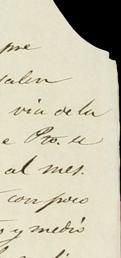 pre
salen
via de la
e Pro. u
al mes.
con poco
o y medio